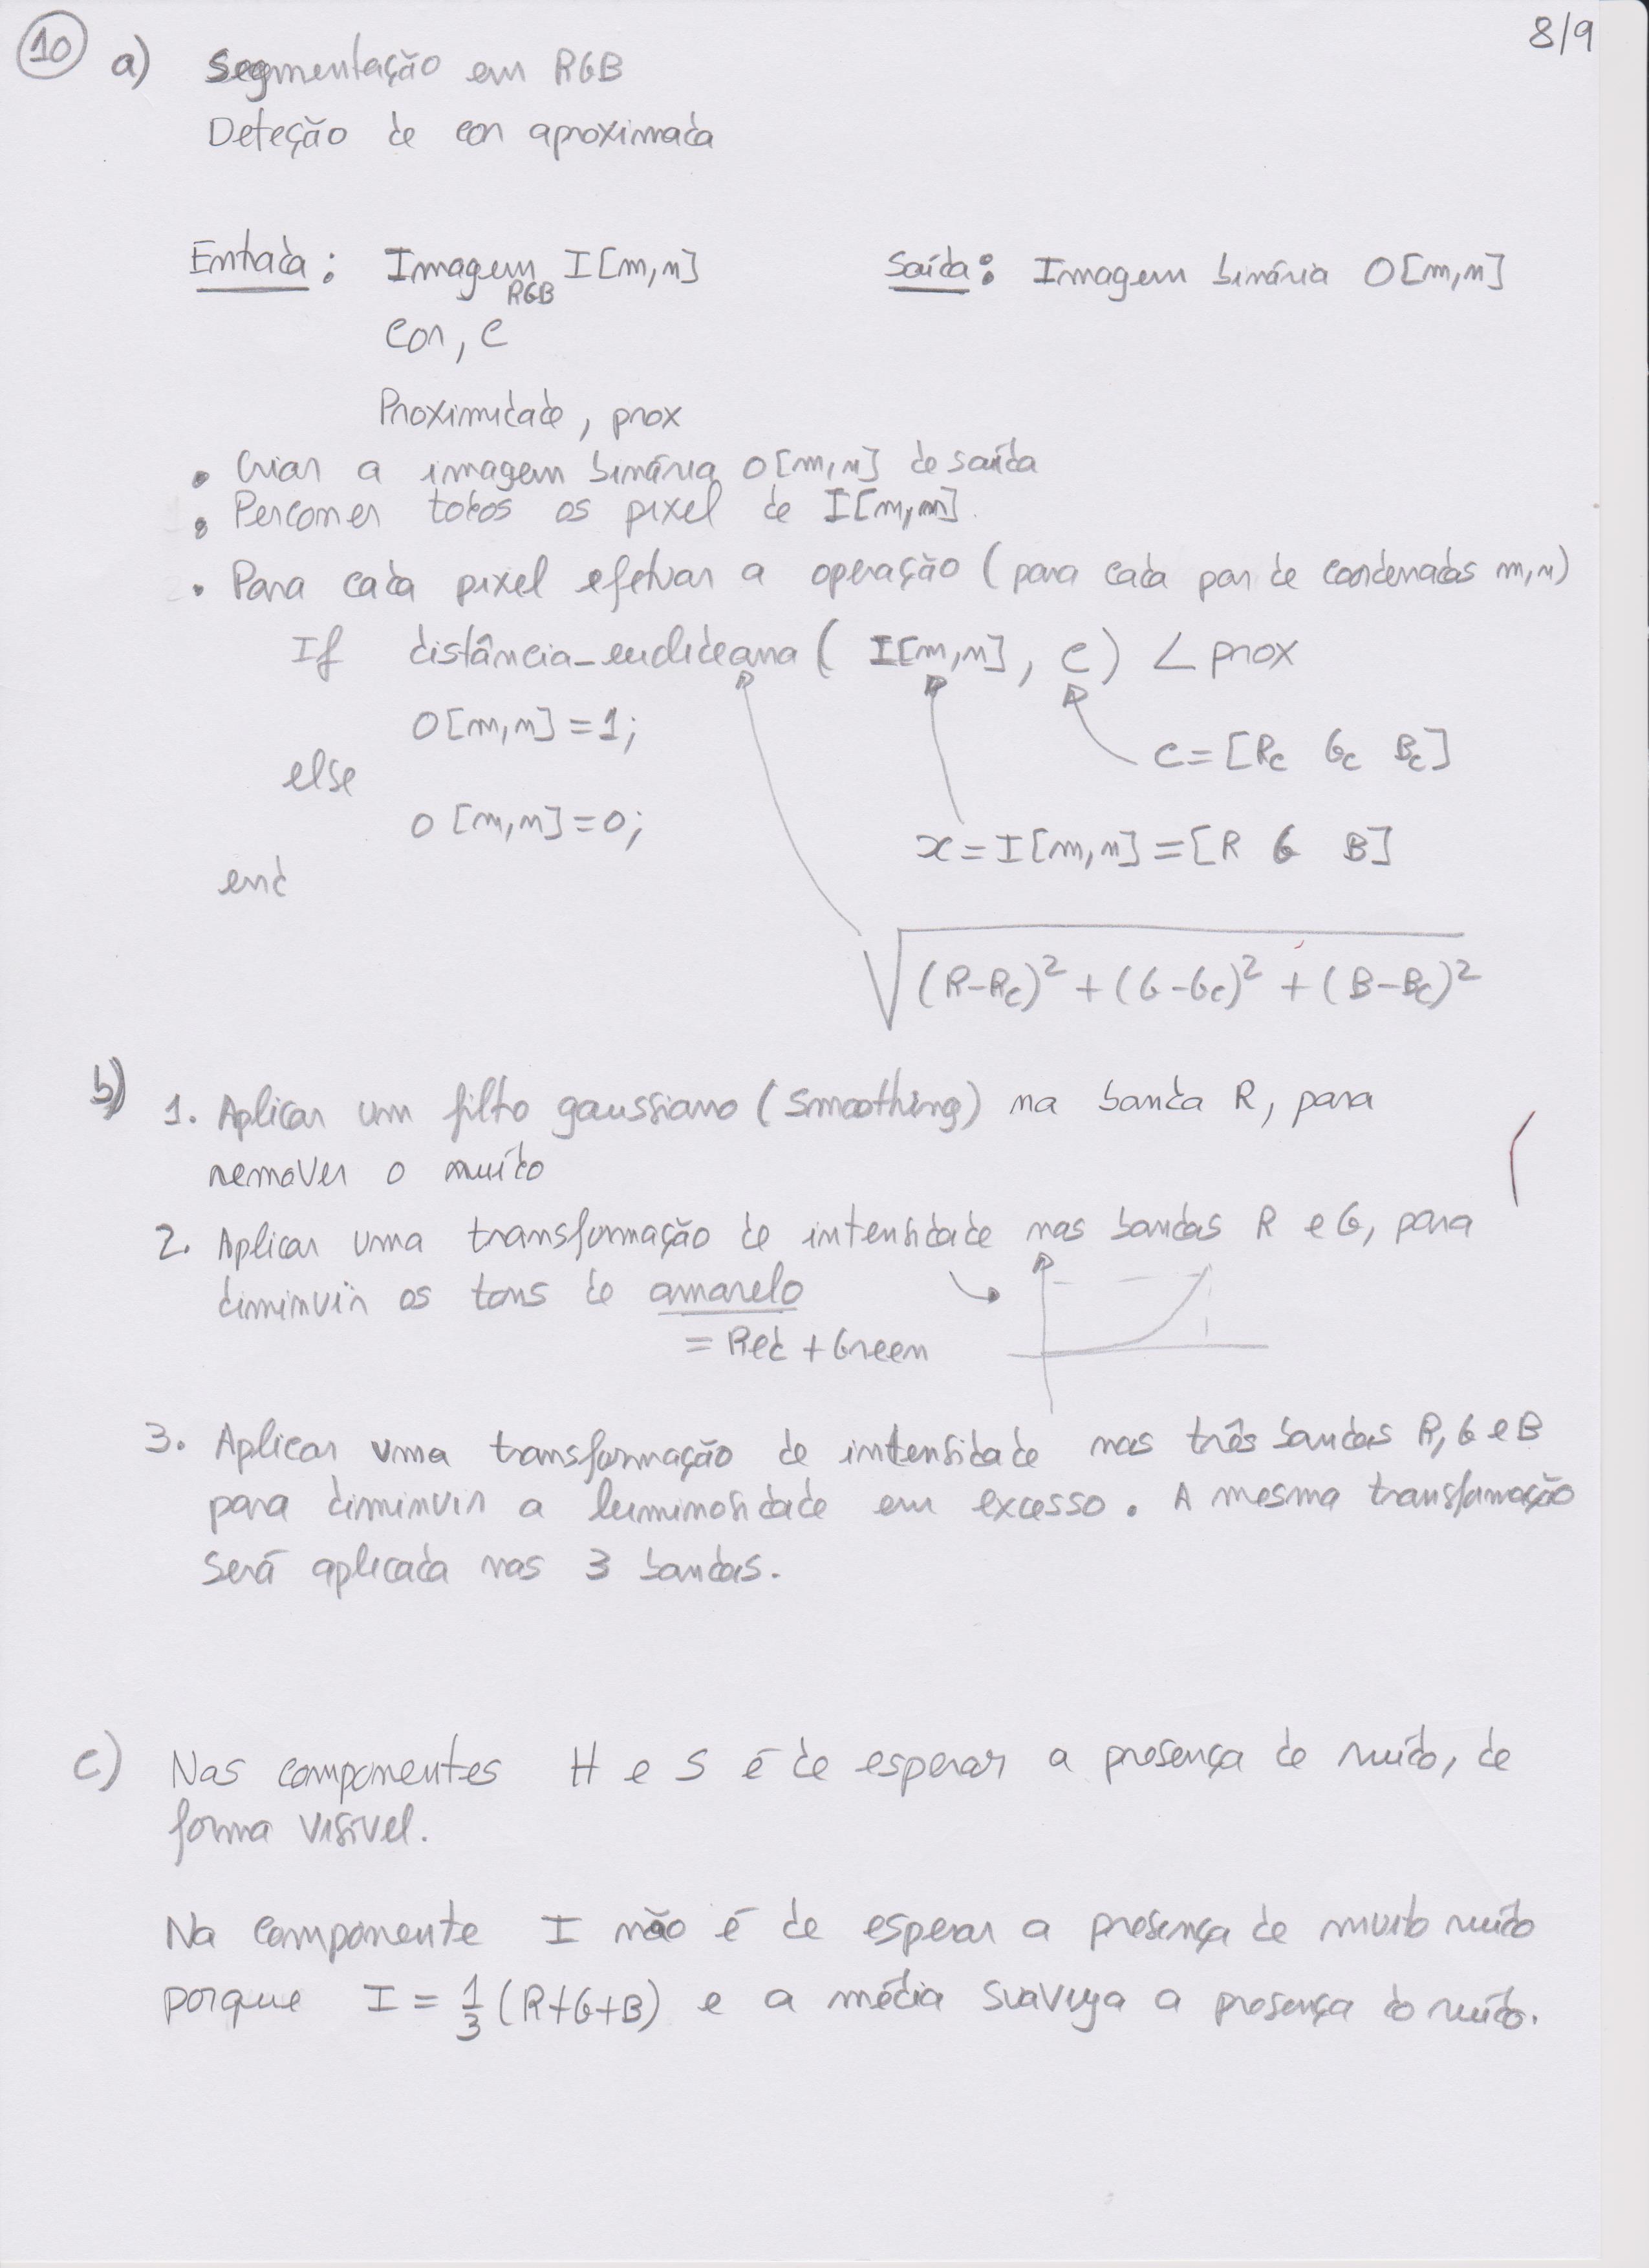 8/9
10 a) Segmentação em RGB
Deteção de cor aproximada
Entrada: Imagem RGB I[m,n]
Saída: Imagem binária O[m,n]
Cor, C
Proximidade, prox
• Criar a imagem binária O[m,n] de saída
• Percorrer todos os pixel de I[m,n].
• Para cada pixel efetuar a operação (para cada par de coordenadas m,n)
If distância_euclideana ( I[m,n], C) < prox
O[m,n] = 1;
C = [Rc Gc Bc]
else
O[m,n] = 0;
x = I[m,n] = [R G B]
end
√((R-Rc)² + (G-Gc)² + (B-Bc)²)
b) 1. Aplicar um filtro gaussiano (smoothing) na banda R, para
remover o ruído
2. Aplicar uma transformação de intensidade nas bandas R e G, para
diminuir os tons de amarelo
= Red + Green
3. Aplicar uma transformação de intensidade nas três bandas R, G e B
para diminuir a luminosidade em excesso. A mesma transformação
será aplicada nas 3 bandas.
c) Nas componentes H e S é de esperar a presença de ruído, de
forma visível.
Na componente I não é de esperar a presença de muito ruído
porque I = 1/3 (R+G+B) e a média suaviza a presença do ruído.